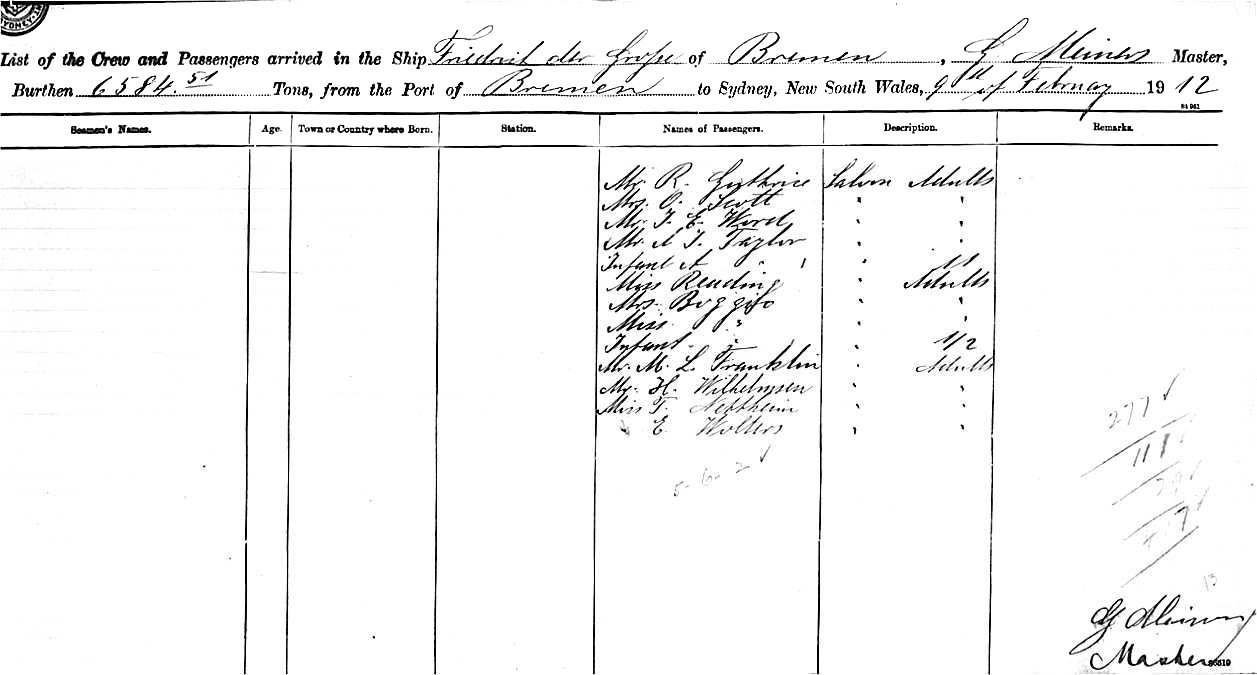 SYDNEY
List of the Crew and Passengers arrived in the Ship Friedrich der Große of Bremen, G Meiners Master,
Burthen 6584.51 Tons, from the Port of Bremen to Sydney, New South Wales, 9 of February 1912
Seamen's Names. Age. Town or Country where Born. Station. Names of Passengers. Description. Remarks.
Mr. R. Guthrice Saloon Adults
Mrs. O. Scott " "
Mr. F. E. Ward " "
Mr. A. J. Taylor " "
Infant A " " "
Miss Reading " Adults
Mrs. Boggio " "
Miss " " "
Infant " " 1/2
Mr. M. L. Franklin " Adults
Mr. H. Wilhelmsen " "
Miss F. Nettheim " "
" E. Wolters " "
277
5-6-2
111
13
G Meiners
Master